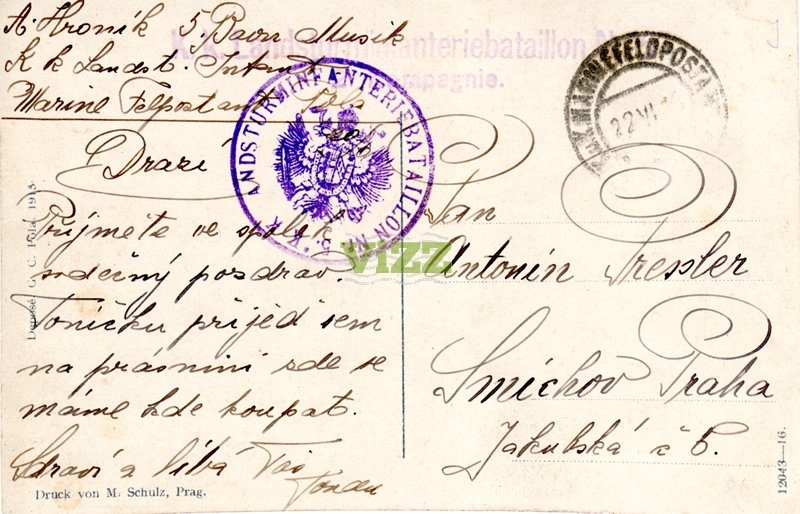 A. Hroník 5 Baon Musik
K k Landst. Infant
Marine Felpostamt Pola
K. K. Landsturminfanteriebataillon N
ompagnie.
K.K. LANDSTURMINFANTERIEBATAILLON Nr. 5.
K.u.K. MARINEFELDPOSTAM
22 VI
Drazí
Prijmete ve spolek
srdečný pozdrav.
Toničku přijeď sem
na prásnini zde se
máme kde koupat.
Zdraví a líbá Váš
Tonda
Pan
Antonín Tressler
Smíchov Praha
Jakubská č 5.
Deposé G. C. Pola 1913.
Druck von M. Schulz, Prag.
12043—16.
VIZZ